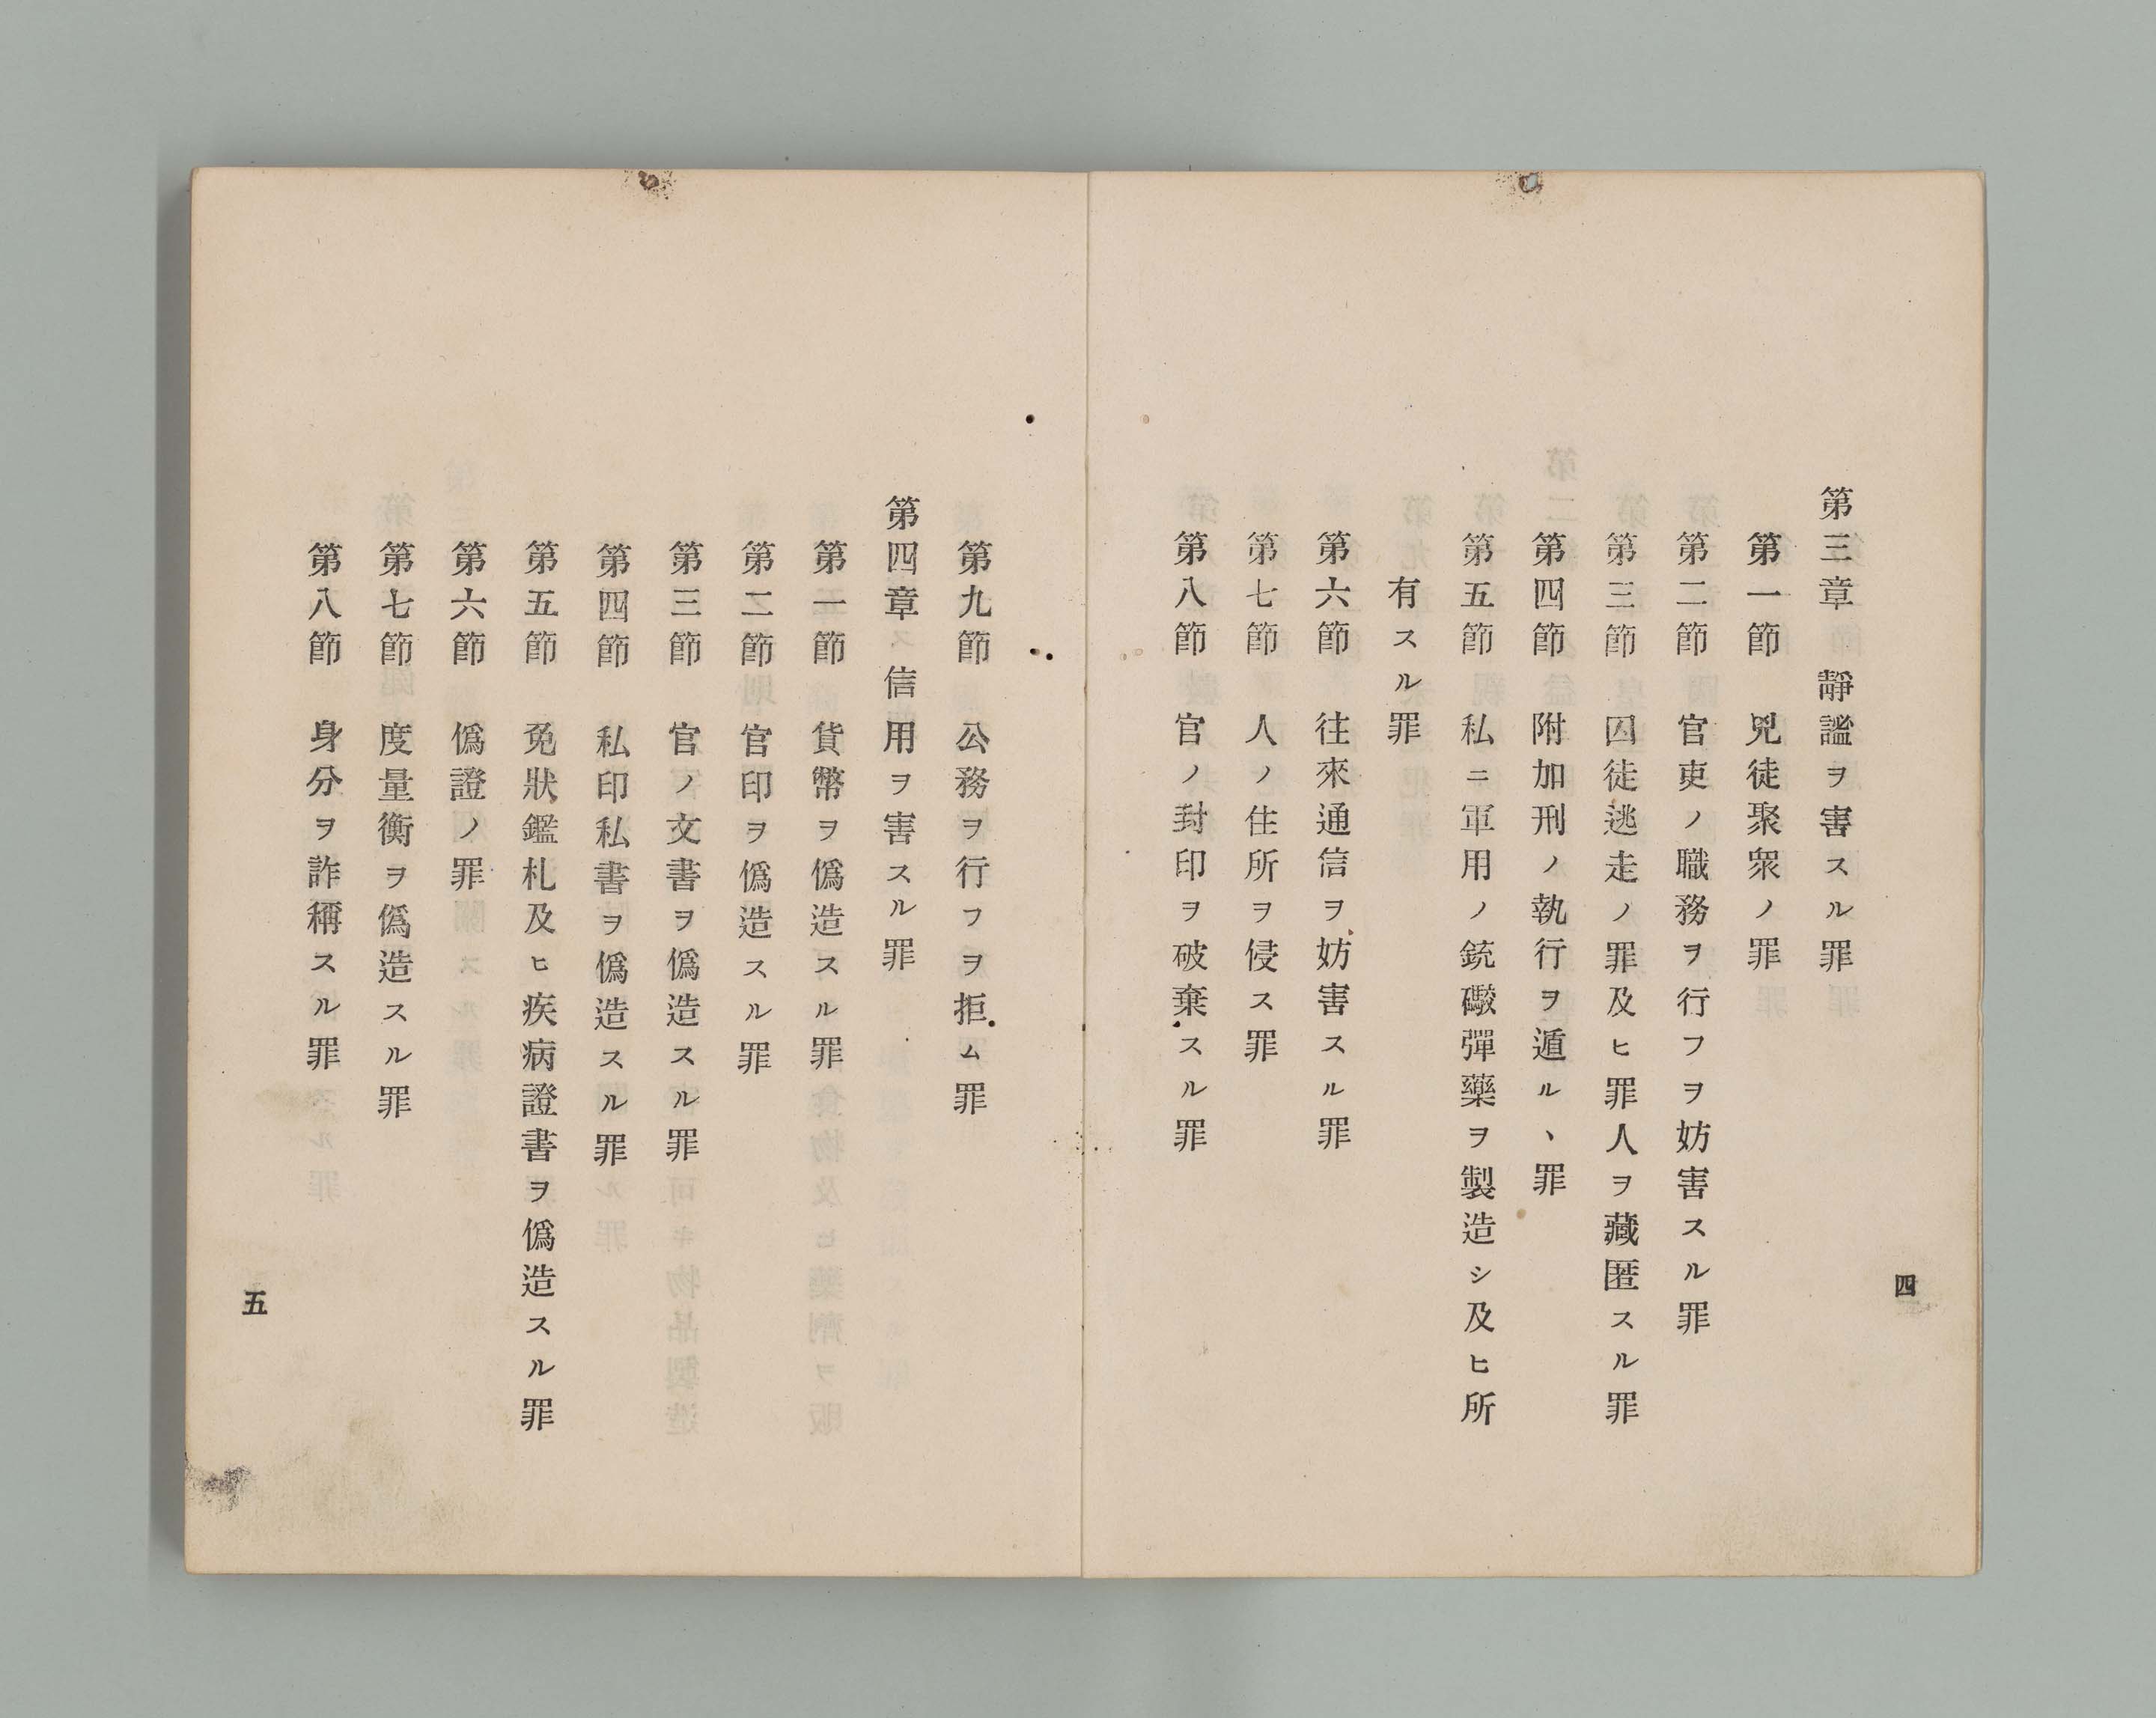 四
第三章 靜謐ヲ害スル罪
第一節 兇徒聚衆ノ罪
第二節 官吏ノ職務ヲ行フヲ妨害スル罪
第三節 囚徒逃走ノ罪及ヒ罪人ヲ藏匿スル罪
第四節 附加刑ノ執行ヲ遁ルヽ罪
第五節 私ニ軍用ノ銃礮彈藥ヲ製造シ及ヒ所
有スル罪
第六節 往來通信ヲ妨害スル罪
第七節 人ノ住所ヲ侵ス罪
第八節 官ノ封印ヲ破棄スル罪
第九節 公務ヲ行フヲ拒ム罪
第四章 信用ヲ害スル罪
第一節 貨幣ヲ僞造スル罪
第二節 官印ヲ僞造スル罪
第三節 官ノ文書ヲ僞造スル罪
第四節 私印私書ヲ僞造スル罪
第五節 免狀鑑札及ヒ疾病證書ヲ僞造スル罪
第六節 僞證ノ罪
第七節 度量衡ヲ僞造スル罪
第八節 身分ヲ詐稱スル罪
五